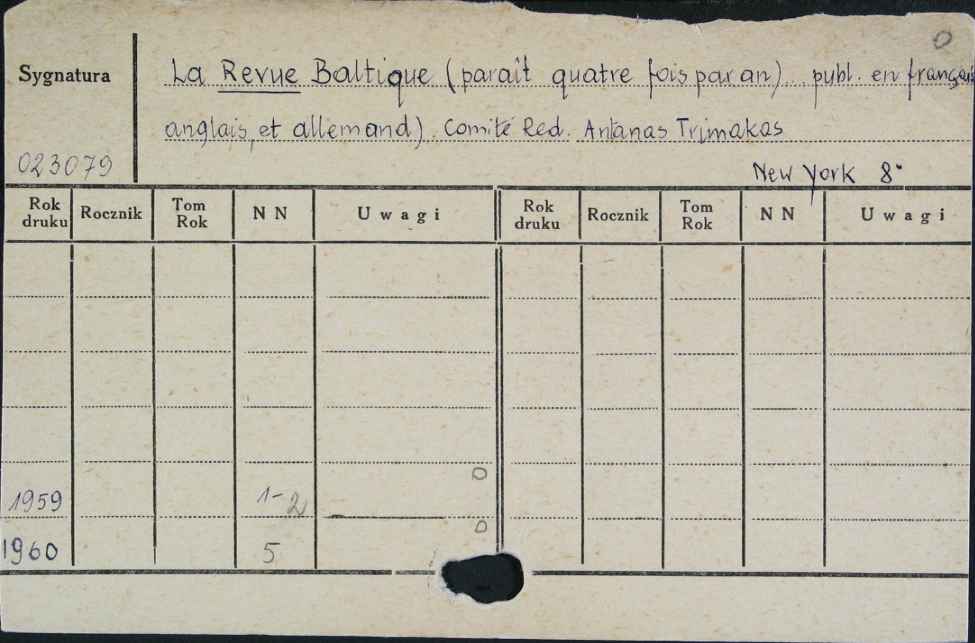 0
Sygnatura
La Revue Baltique (paraît quatre fois par an) publ. en français
anglais, et allemand). Comité Red. Antanas Trimakas
023079
New York 8°
Rok druku Rocznik Tom Rok N N Uwagi Rok druku Rocznik Tom Rok N N Uwagi
0
1959 1-2
0
1960 5